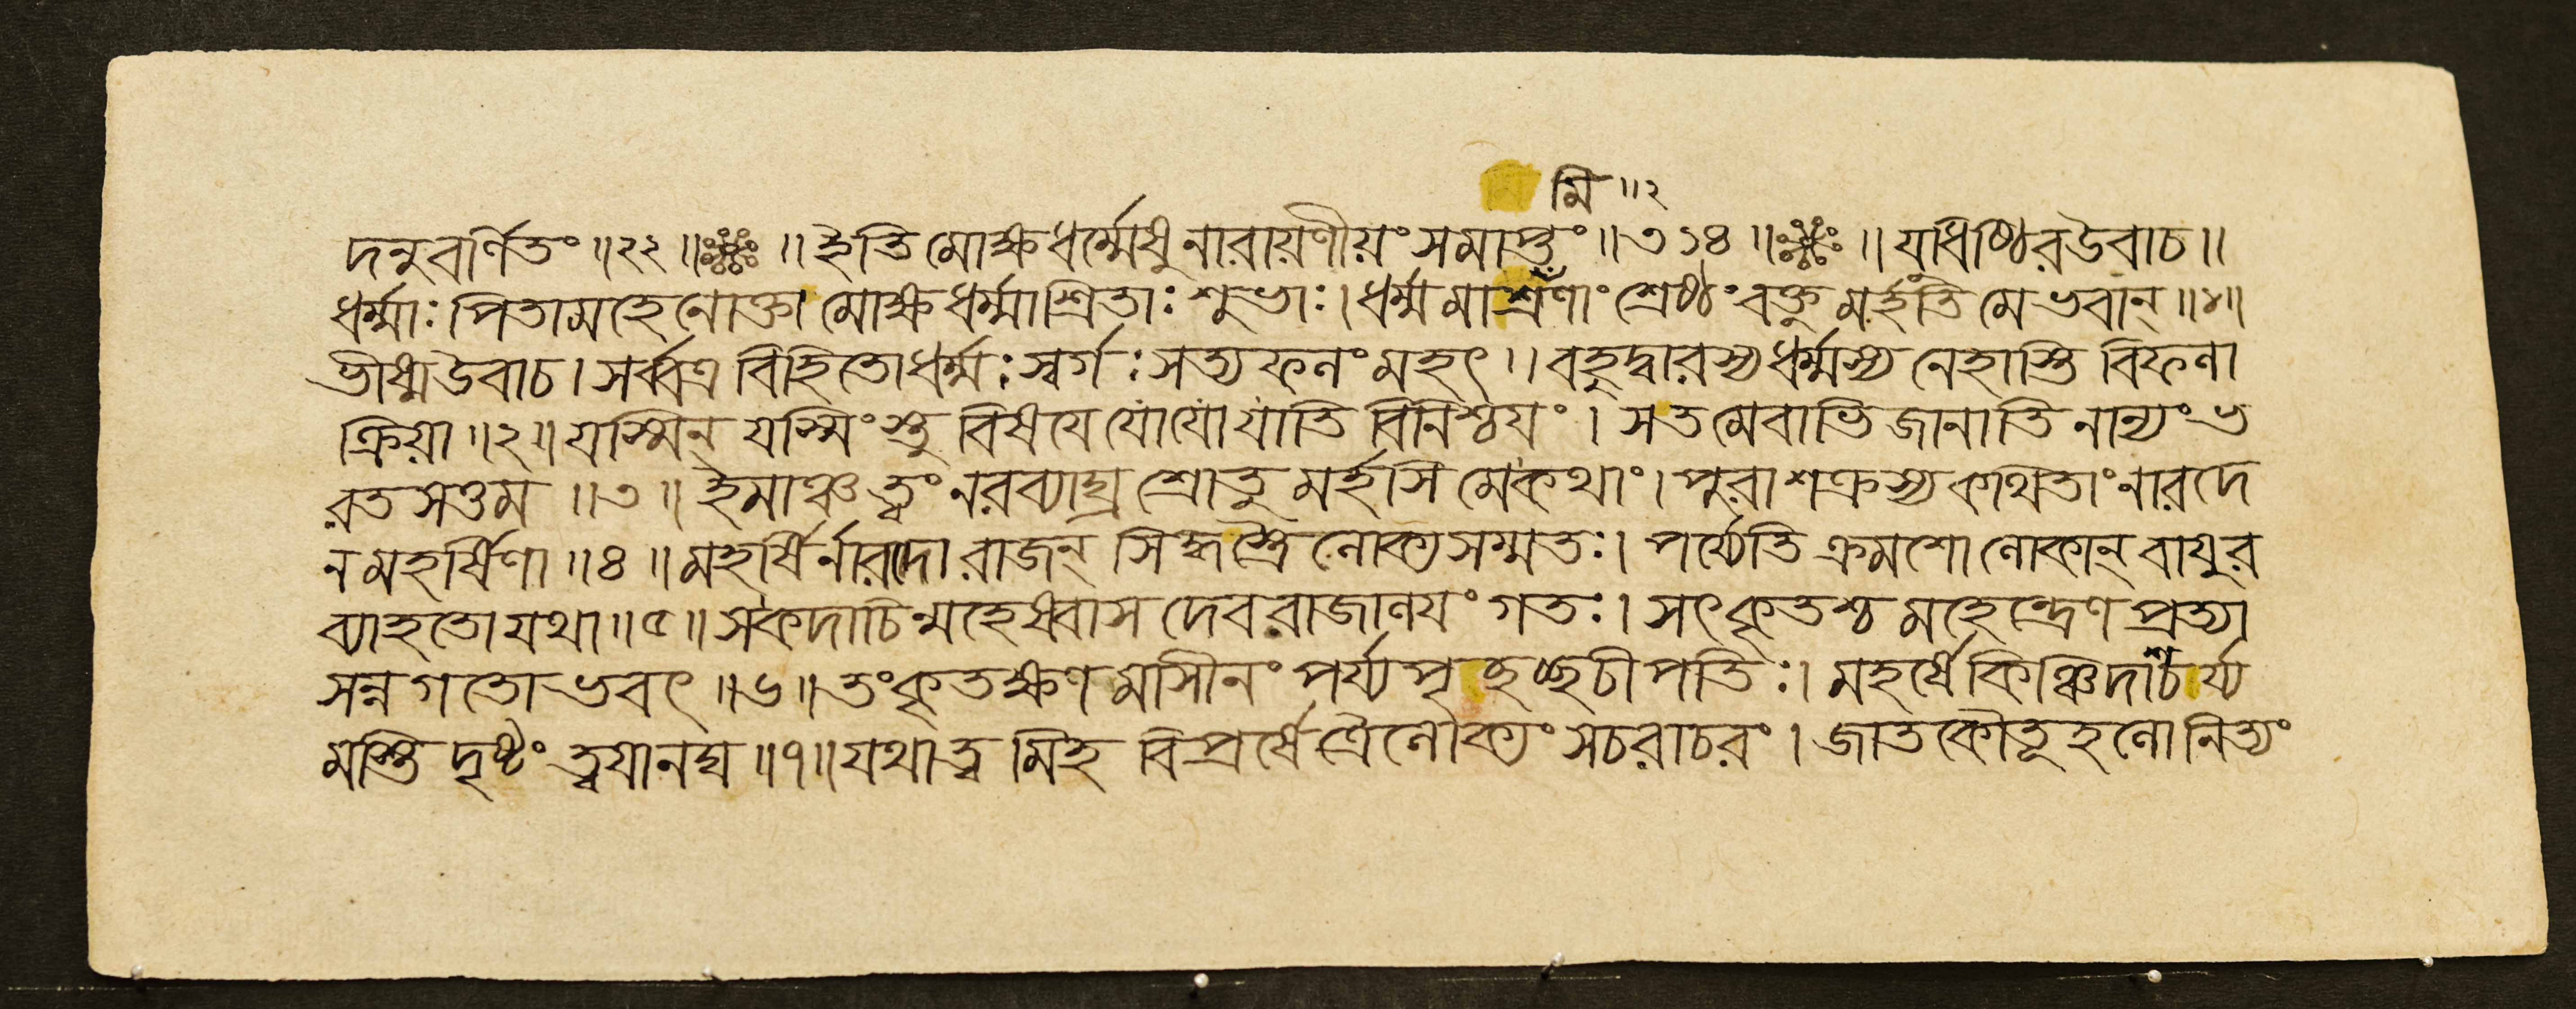 মি ॥২
দনুবর্ণিতং ॥২২॥ ॥ ইতি মোক্ষধর্ম্মেষু নারায়ণীয়ং সমাপ্তং ॥৩১৪॥ ॥ যুধিষ্ঠিরউবাচ ॥
ধর্ম্মাঃ পিতামহেনোক্তা মোক্ষধর্ম্মাশ্রিতাঃ শুভাঃ। ধর্ম্মমাশ্রমিণাং শ্রেষ্ঠং বক্তুমর্হতি মে ভবান্ ॥১॥
ভীষ্মউবাচ। সর্ব্বত্র বিহিতোধর্ম্মঃ স্বর্গঃ সত্যফলং মহৎ ।। বহুদ্বারস্য ধর্ম্মস্য নেহাস্তি বিফলা
ক্রিয়া ॥২॥ যস্মিন্ যস্মিংস্তু বিষয়ে যো যো যাতি বিনিশ্চয়ং। সতমেবাভিজানাতি নান্যং ভ
রতসত্তম ॥৩॥ ইমাঞ্চ ত্বং নরব্যাঘ্র শ্রোতুমর্হসি মে কথাং। পুরা শক্রস্য কথিতাং নারদে
ন মহর্ষিণা ॥৪॥ মহর্ষির্নারদো রাজন্ সিদ্ধস্ত্রৈলোক্যসম্মতঃ। পর্য্যেতি ক্রমশো লোকান্ বায়ুর
ব্যাহতো যথা ॥৫॥ স কদাচিন্মহেষ্বাস দেবরাজালয়ং গতঃ। সৎকৃতশ্চ মহেন্দ্রেণ প্রত্যা
সন্নগতোভবৎ ॥৬॥ তং কৃতক্ষণমাসীনং পর্য্যপৃচ্ছচ্ছচীপতিঃ। মহর্ষে কিঞ্চিদাশ্চর্য্য
মস্তি দৃষ্টং ত্বয়ানঘ ॥৭॥ যথা ত্বমিহ বিপ্রর্ষে ত্রৈলোক্যং সচরাচরং। জাতকৌতূহলো নিত্যং